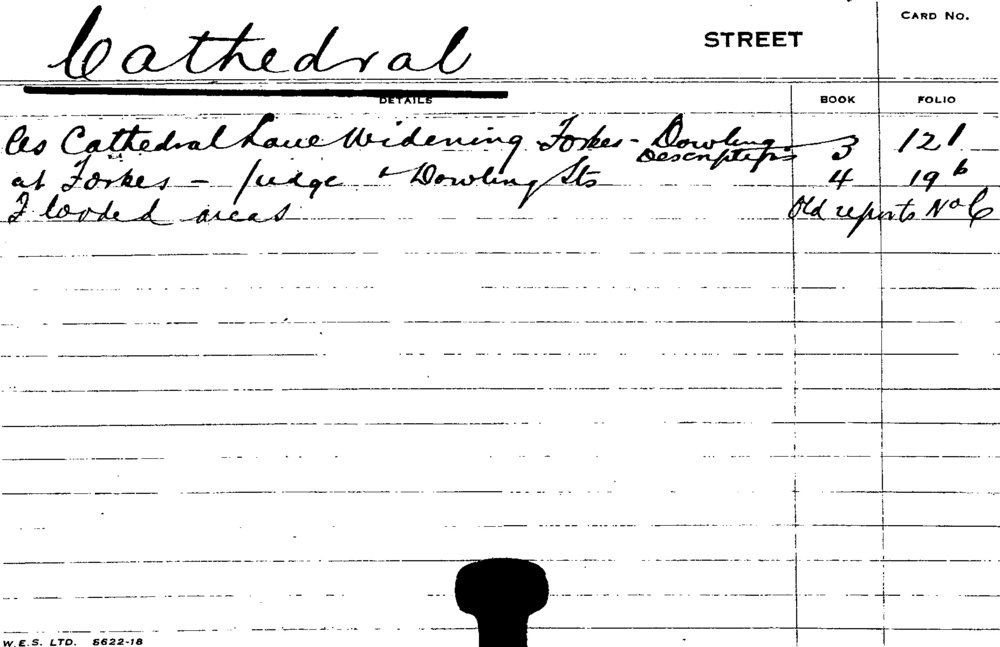 Cathedral STREET CARD No.
DETAILS BOOK FOLIO
Ces Cathedral Lane Widening Forbes - Dowling Description 3 121
at Forbes - Judge & Dowling Sts 4 19 b
Flooded areas Old reports No 6
W.E.S. LTD. S622-18